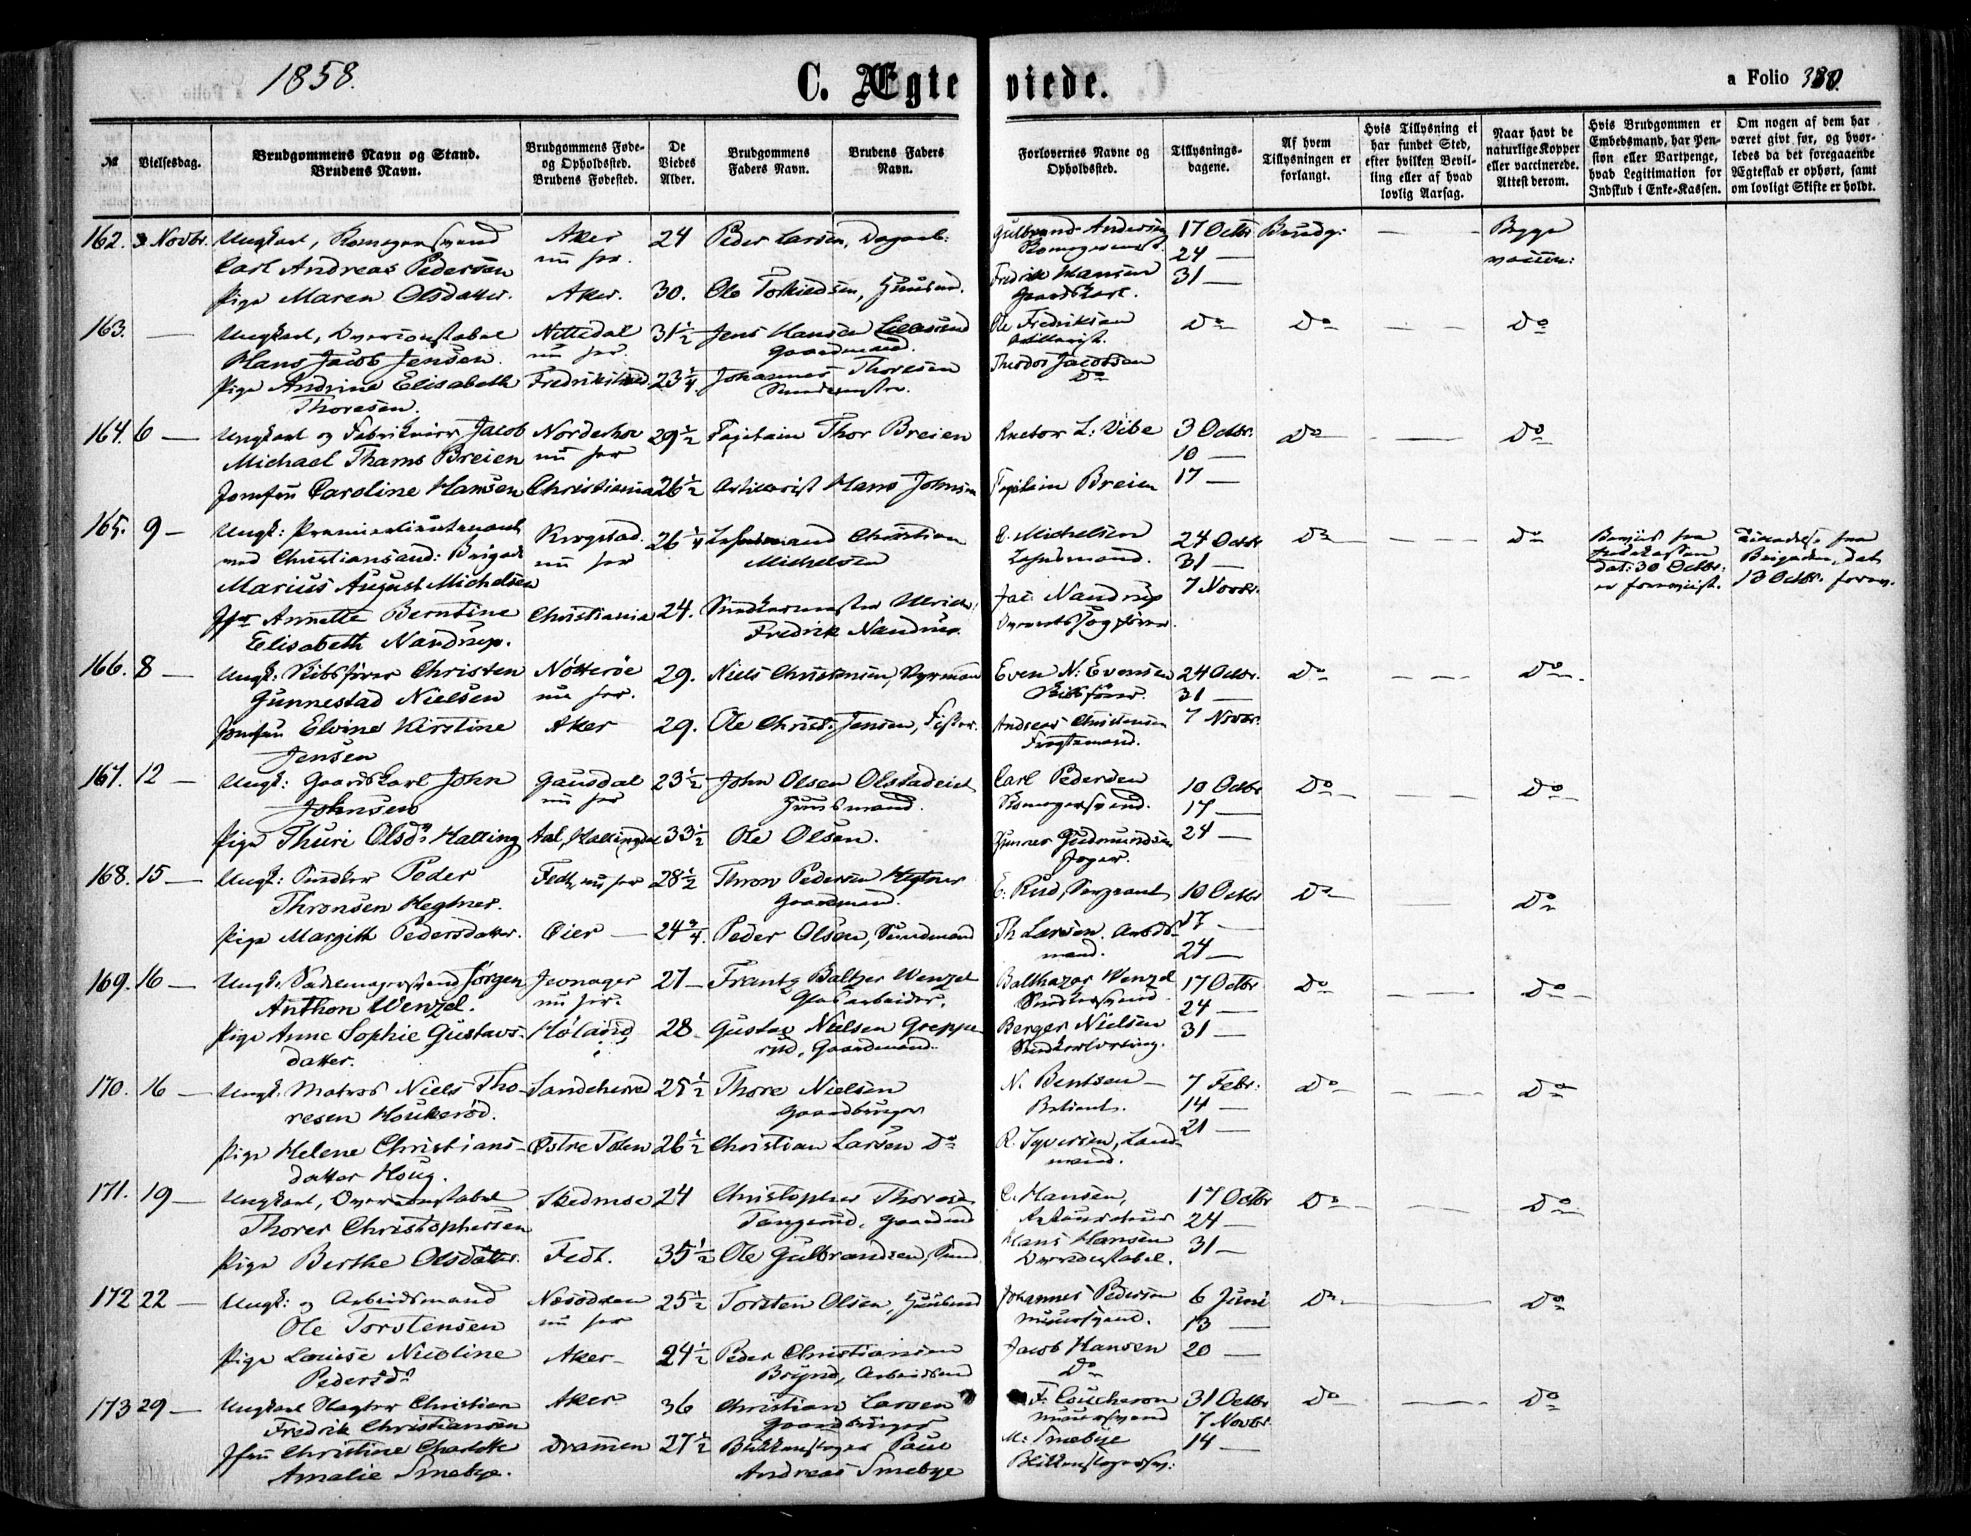 1858.
C. Ægteviede.
a Folio 380.
No
Vielsesdag.
Brudgommens Navn og Stand.
Brudens Navn.
Brudgommens Føde-
og Opholdssted.
Brudens Fødested.
De
Viedes
Alder.
Brudgommens
Faders Navn.
Brudens Faders
Navn.
Forlovernes Navne og
Opholdssted.
Tillysnings-
dagene.
Af hvem
Tillysningen er
forlangt.
Hvis Tillysning ei
har fundet Sted,
efter hvilken Bevil-
ling eller af hvad
lovlig Aarsag.
Naar havt de
naturlige Kopper
eller vaccinerede.
Attest derom.
Hvis Brudgommen er
Embedsmand, har Pen-
sion eller Vartpenge,
hvad Legitimation for
Indskud i Enke-Kassen.
Om nogen af dem har
været givt før, og hvor-
ledes da det foregaaende
Ægteskab er ophørt, samt
om lovligt Skifte er holdt.
162. 3 Novbr. Ungkarl, Aker 24 Peder Larsen, Gulbrand Andersen 17 Octbr Brudg: Begge
Carl Andreas Pedersen nu her. 24 — vaccin:
Pige Maren Olsdatter. Aker. 30. Ole Fredrik Hansen 31 —
Gaardskarl.
163. — Ungkarl, Overconstabel Nittedal 31½ Jens Hansen Ole Fredriksen Do Do Do
Hans Jacob Jensen. nu her. Gaardmand. Artillerist.
Pige Andrine Elisabeth Fredrikstad 23¼ Johannes Thoresen Theodor Jacobsen
Thoresen. Do
164. 6 — Ungkarl og Jacob Norderhov 29½ Capitain Thor Breien L: Vibe 3 Octbr. Do Do
Michael Thams Breien nu her 10 —
Jomfru Caroline Hansen Christiania 26½ Artillerist Hans Johnsen Capitain Breien 17 —
165. 9 — Ungk: Premierlieutenant Krogstad 26¼ Christian C. Michelsen 24 Octbr Do Do
ved Christiansand: Brigade nu her Michelsen 31 — dat: 30 Octbr.
Marius August Michelsen 7 Novbr. 13 Octbr.
Jfr Annette Berntine Christiania 24. Ulrich Nandrup
Elisabeth Nandrup. Fredrik Nandrup.
166. 8 — Ungk: Skibsfører Christen Nøtterøe 29. Niels Christensen, Styrmand Even N: Evensen 24 Octbr. Do Do
Gunnestad Nielsen nu her. Skibsfører. 31 —
Jomfru Elvine Kirstine Aker 29. Ole Christ: Jensen, Andreas Christensen 7 Novbr.
Jensen Fragtemand.
167. 12 — Ungk: Gaardskarl John Gausdal 23½ John Olsen Olstadeiet Carl Pedersen 10 Octbr Do Do
Johnsen nu her Huusmand. 17 —
Pige Thuri Olsd: Halling Aal, Hallingdal 33½ Ole Olsen. Gunner Gudmundsen 24 —
168. 15 — Ungk: Snedker Peder Fedt, nu her 28½ Thron Pedersen Hegtner E. Rud, Sergeant 10 Octbr Do Do
Thronsen Hegtner. Gaardmand. 17 —
Pige Margith Pedersdatter. Øier 24¾ Peder Olsen, Th Larsen. Arbeids- 24 —
mand.
169. 16 — Ungk: Jørgen Jevnager 27 Frantz Baltzer Wenzel Balthazar Wenzel 17 Octbr Do Do
Anthon Wenzel. nu her. Glasarbeider. Snedkersvend 24 —
Pige Anne Sophie Gustavs- Høland 28 Gustav Nielsen Greppe- Berger Nielsen 31 —
datter. rud, Gaardmand.
170. 16 — Ungk. Matros Niels Tho- Sandeherred 25½ Thore Nielsen N. Bentsen 7 Febr: Do Do
resen Houkerød. Gaardbruger Betient. 14 —
Pige Helene Christians- Østre Toten 26½ Christian Larsen Do R. Syversen, Land- 21 —
datter Houg. mand.
171. 19 — Ungkarl, Overconstabel Skedsmoe 24 Christopher Thoresen C. Hansen, 17 Octbr Do Do
Thorer Christophersen Tangerud, 24 —
Pige Berthe Olsdatter. Fedt. 35½ Ole Gulbrandsen, Hans Hansen 31 —
Overconstabel.
172 22 — Ungk: og Arbeidsmand Næsodden 25½ Torsten Olsen, Huusmd Johannes Pedersen 6 Juni Do Do
Ole Torstensen nu her Muursvend. 13 —
Pige Louise Nicoline Aker 24½ Peder Christiansen Jacob Hansen 20 —
Pedersd: Brynd, Arbeidsmd Do
173 29 — Ungkarl Slagter Christian Aker 36 Christian Larsen F. Coucheron 31 Octbr Do Do
Fredrik Christiansen Gaardbruger Muursvend 7 Novbr.
Jfru Christine Charlotte Drammen 27½ Blikkenslager Paul M: Smebye 14 —
Amalie Smebye. Andreas Smebye Blikkenslagersv: